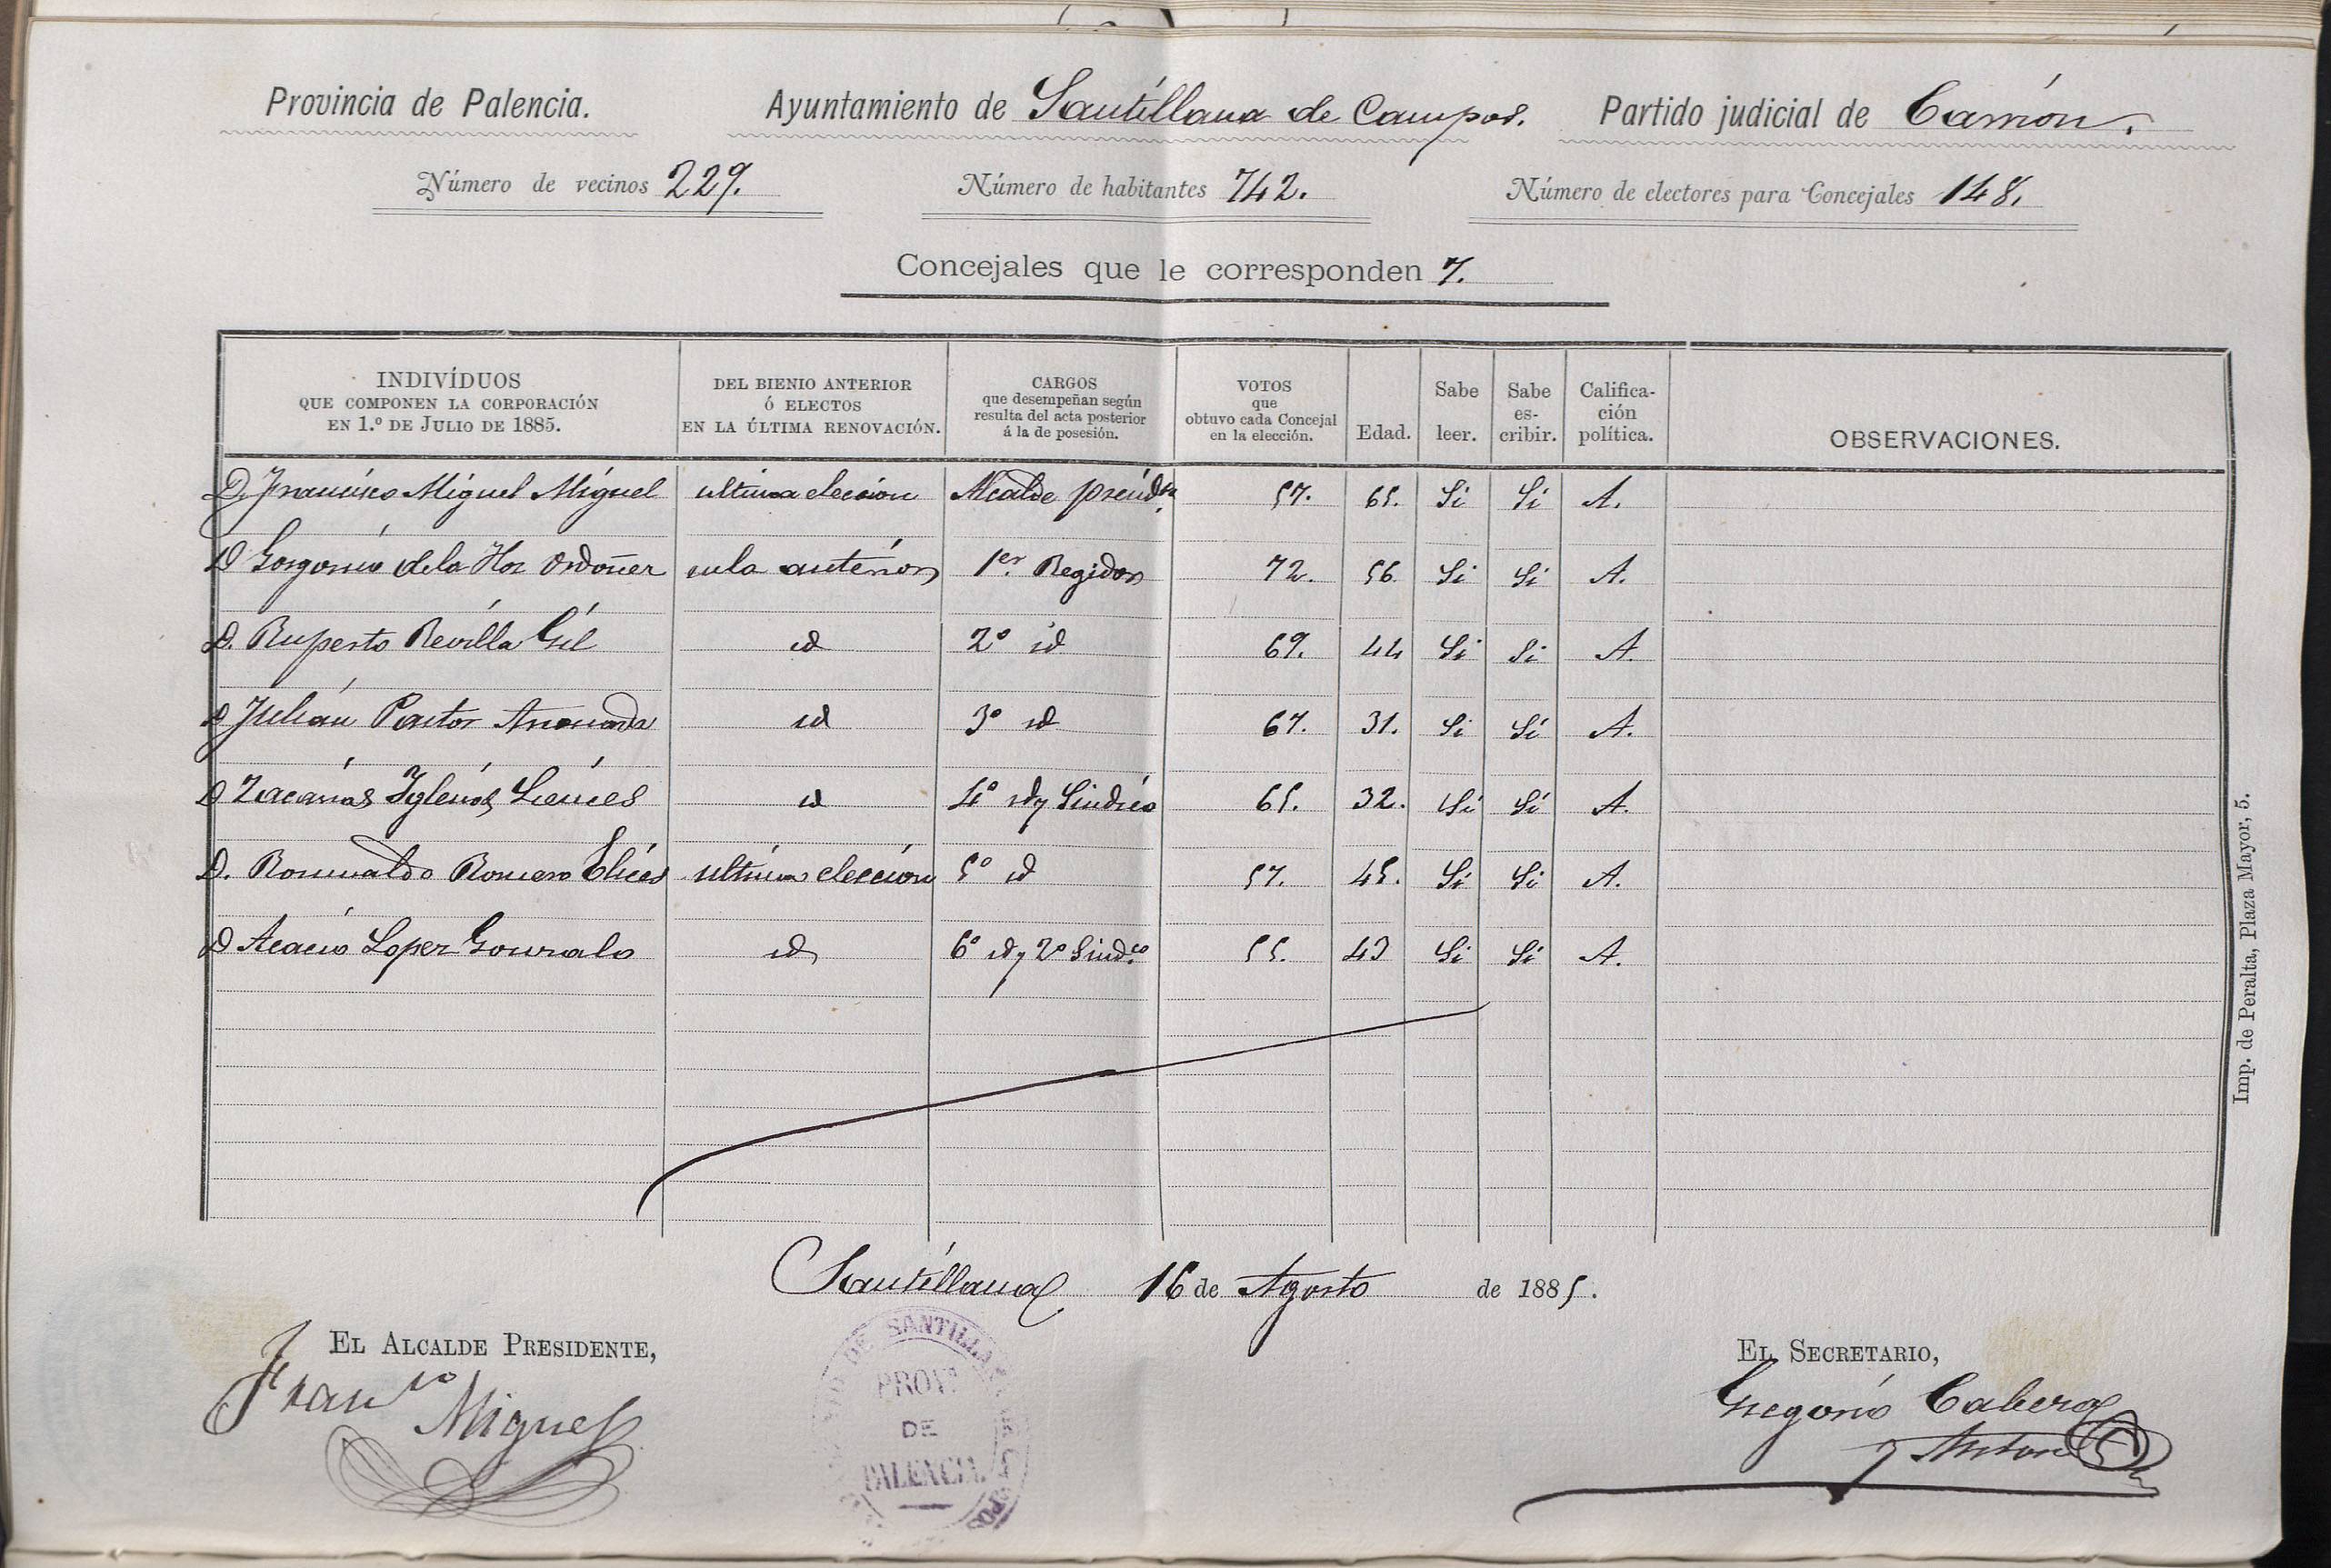 Provincia de Palencia. Ayuntamiento de Santillana de Campos. Partido judicial de Carrión.
Número de vecinos 229. Número de habitantes 742. Número de electores para Concejales 148.
Concejales que le corresponden 7.
INDIVÍDUOS QUE COMPONEN LA CORPORACIÓN EN 1.º DE JULIO DE 1885. DEL BIENIO ANTERIOR Ó ELECTOS EN LA ÚLTIMA RENOVACIÓN. CARGOS que desempeñan según resulta del acta posterior á la de posesión. VOTOS que obtuvo cada Concejal en la elección. Edad. Sabe leer. Sabe es-cribir. Califica-ción política. OBSERVACIONES.
D. Francisco Miguel Miguel ultima eleccion Alcalde presid.te 57. 65. Si Si A.
D Gorgonio de la Hoz Ordoñez en la anterior 1er. Regidor 72. 56. Si Si A.
D. Ruperto Revilla Gil id 2º id 69. 44 Si Si A.
D Julián Pastor id 3º id 67. 31. Si Si A.
D Zacarias Iglesias id 4º id y Sindico 65. 32. Si Si A.
D. Romualdo Romero Elices ultima eleccion 5º id 57. 45. Si Si A.
D Acacio Lopez Gonzalo id 6º id y 2º Sind.co 55. 43 Si Si A.
Santillana 16 de Agosto de 1885.
EL ALCALDE PRESIDENTE, EL SECRETARIO,
Fran.co Miguel
Gregorio Cabeza
y Anton
DE SANTILLANA
PROVª
DE
PALENCIA
Imp. de Peralta, Plaza Mayor, 5.